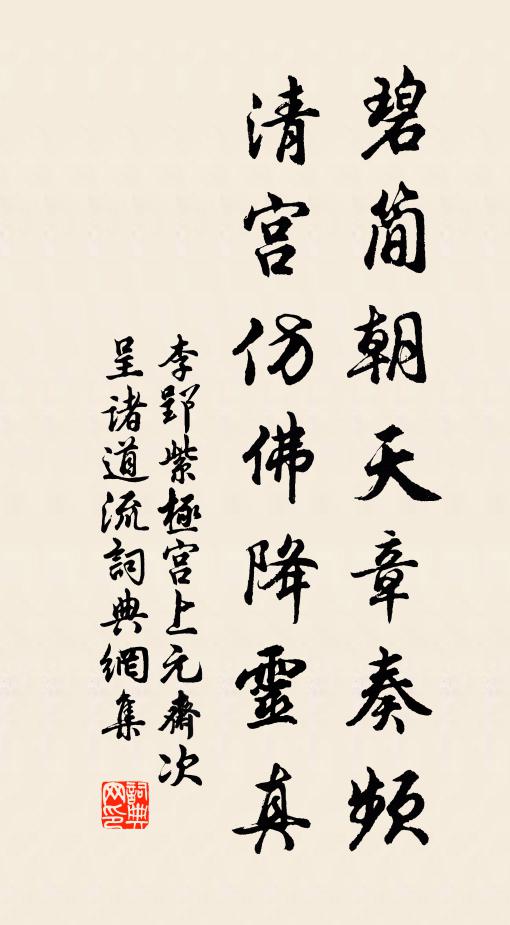 碧简朝天章奏頻
清宫仿佛降靈真
李郢紫極宫上元齋次
呈诸道流詞典網集
詞典网印